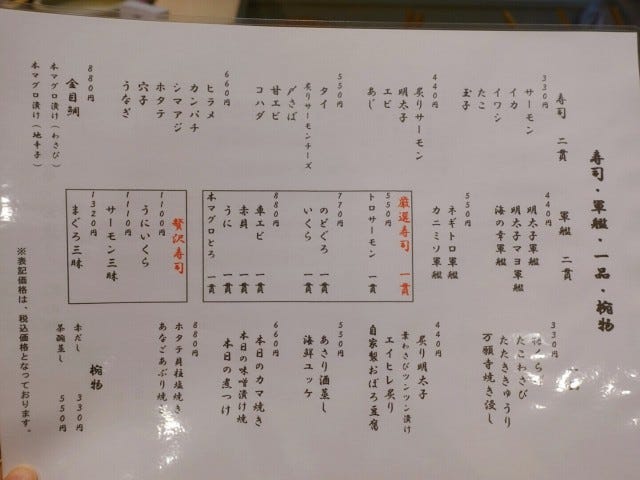 寿司・軍艦・一品・椀物
寿司 二貫
330円
サーモン
イカ
イワシ
たこ
玉子
440円
炙りサーモン
明太子
エビ
あじ
550円
タイ
炙りサーモンチーズ
〆さば
甘エビ
コハダ
660円
ヒラメ
カンパチ
シマアジ
ホタテ
穴子
うなぎ
880円
金目鯛
本マグロ漬け(わさび)
本マグロ漬け(地辛子)
軍艦 二貫
440円
明太子軍艦
明太子マヨ軍艦
海の幸軍艦
550円
ネギトロ軍艦
カニミソ軍艦
厳選寿司 一貫
550円
トロサーモン 一貫
770円
のどぐろ 一貫
いくら 一貫
880円
車エビ 一貫
赤貝 一貫
うに 一貫
本マグロとろ 一貫
贅沢寿司
1100円
うにいくら
1110円
サーモン三昧
1320円
まぐろ三昧
330円
たこわさび
たたききゅうり
万願寺焼き浸し
440円
炙り明太子
葉わさびツンツン漬け
エイヒレ炙り
自家製おぼろ豆腐
550円
あさり酒蒸し
海鮮ユッケ
660円
本日のカマ焼き
本日の味噌漬け焼
本日の煮つけ
880円
ホタテ貝柱塩焼き
あなごあぶり焼き
椀物
赤だし 330円
茶碗蒸し 550円
※表記価格は、税込価格となっております。